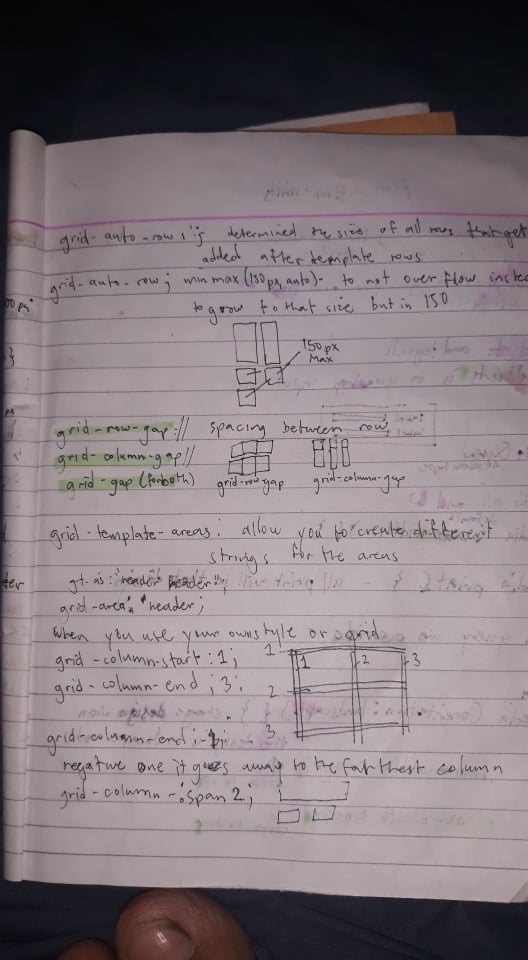 grid-auto-row: determined the size of all rows that get
added after template rows
grid-auto-row; min max (150px, auto)- to not over flow instea
to grow to that size but in 150
150px
Max
grid-row-gap: // spacing between row
grid-column-gap//
grid-gap (for both)
grid-row gap
grid-column-gap
grid-template-areas: allow you to create different
strings for the areas
gt.as: "header header";
grid-area: "header;
when you use your own style or grid
grid-column-start: 1;
grid-column-end; 3;
1 1 2 3
2
3
grid-column-end:-1;
negative one it goes away to the farthest column
grid-column-: span 2;